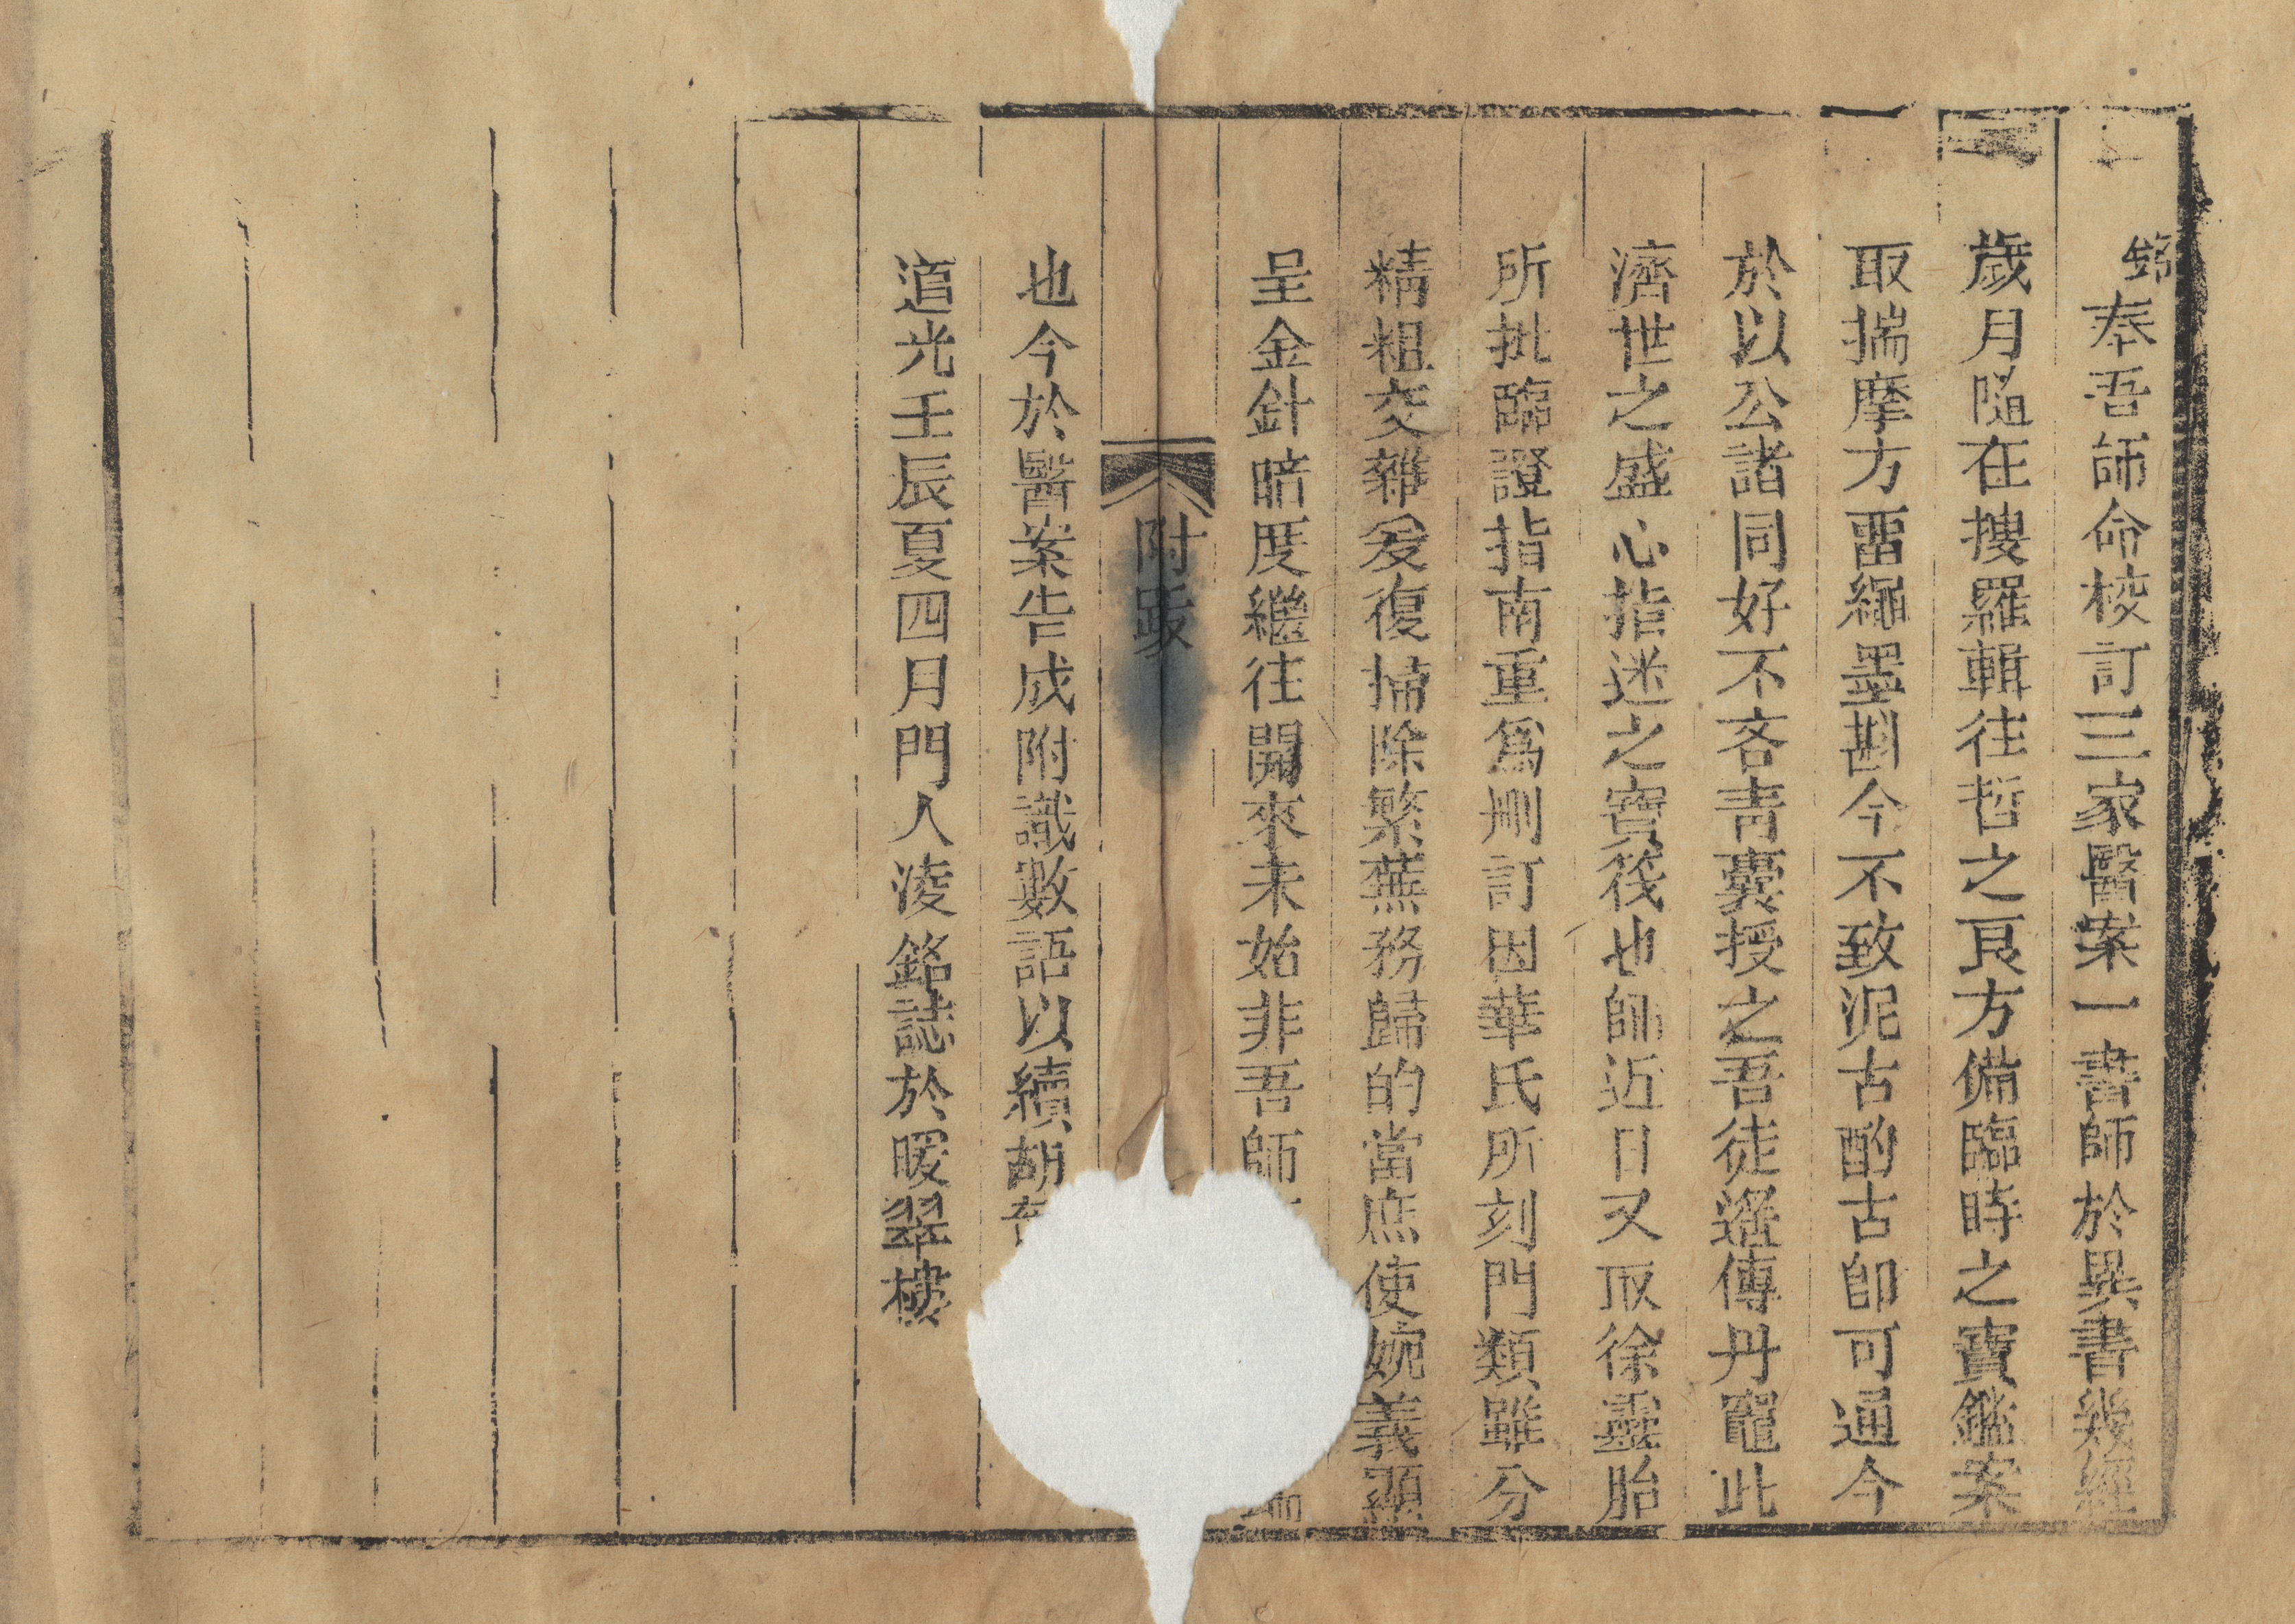 銘奉吾師命校訂三家醫案一書師於異書幾經
歲月隨在搜羅輯往哲之良方備臨時之寶鑑案
取揣摩方畱繩墨斟今不致泥古酌古卽可通今
於以公諸同好不吝靑囊授之吾徒遥傳丹竈此
濟世之盛心指迷之寶筏也師近日又取徐靈胎
所批臨證指南重爲刪訂因華氏所刻門類雖分
精粗交雜爰復掃除繁蕪務歸的當庶使婉義顯
呈金針暗度繼往開來未始非吾師
附跋
也今於醫案告成附識數語以續胡
道光壬辰夏四月門人淩銘誌於暖翠樓